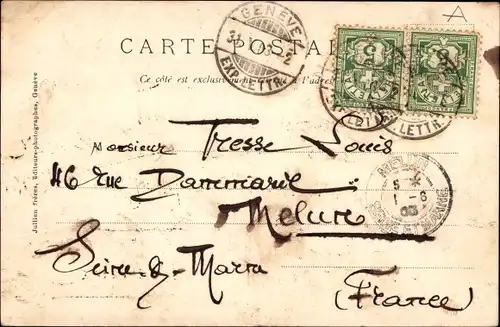 A
CARTE POSTALE
Ce côté est exclusivement réservé à l'adresse
GENÈVE
EXP. LETTR.
Monsieur
Tresse Louis
46 rue Dammarie
Melun
Seine & Marne
(France)
MELUN
1-8
03
SEINE ET MARNE
Jullien frères, Editeurs-photographes, Genève